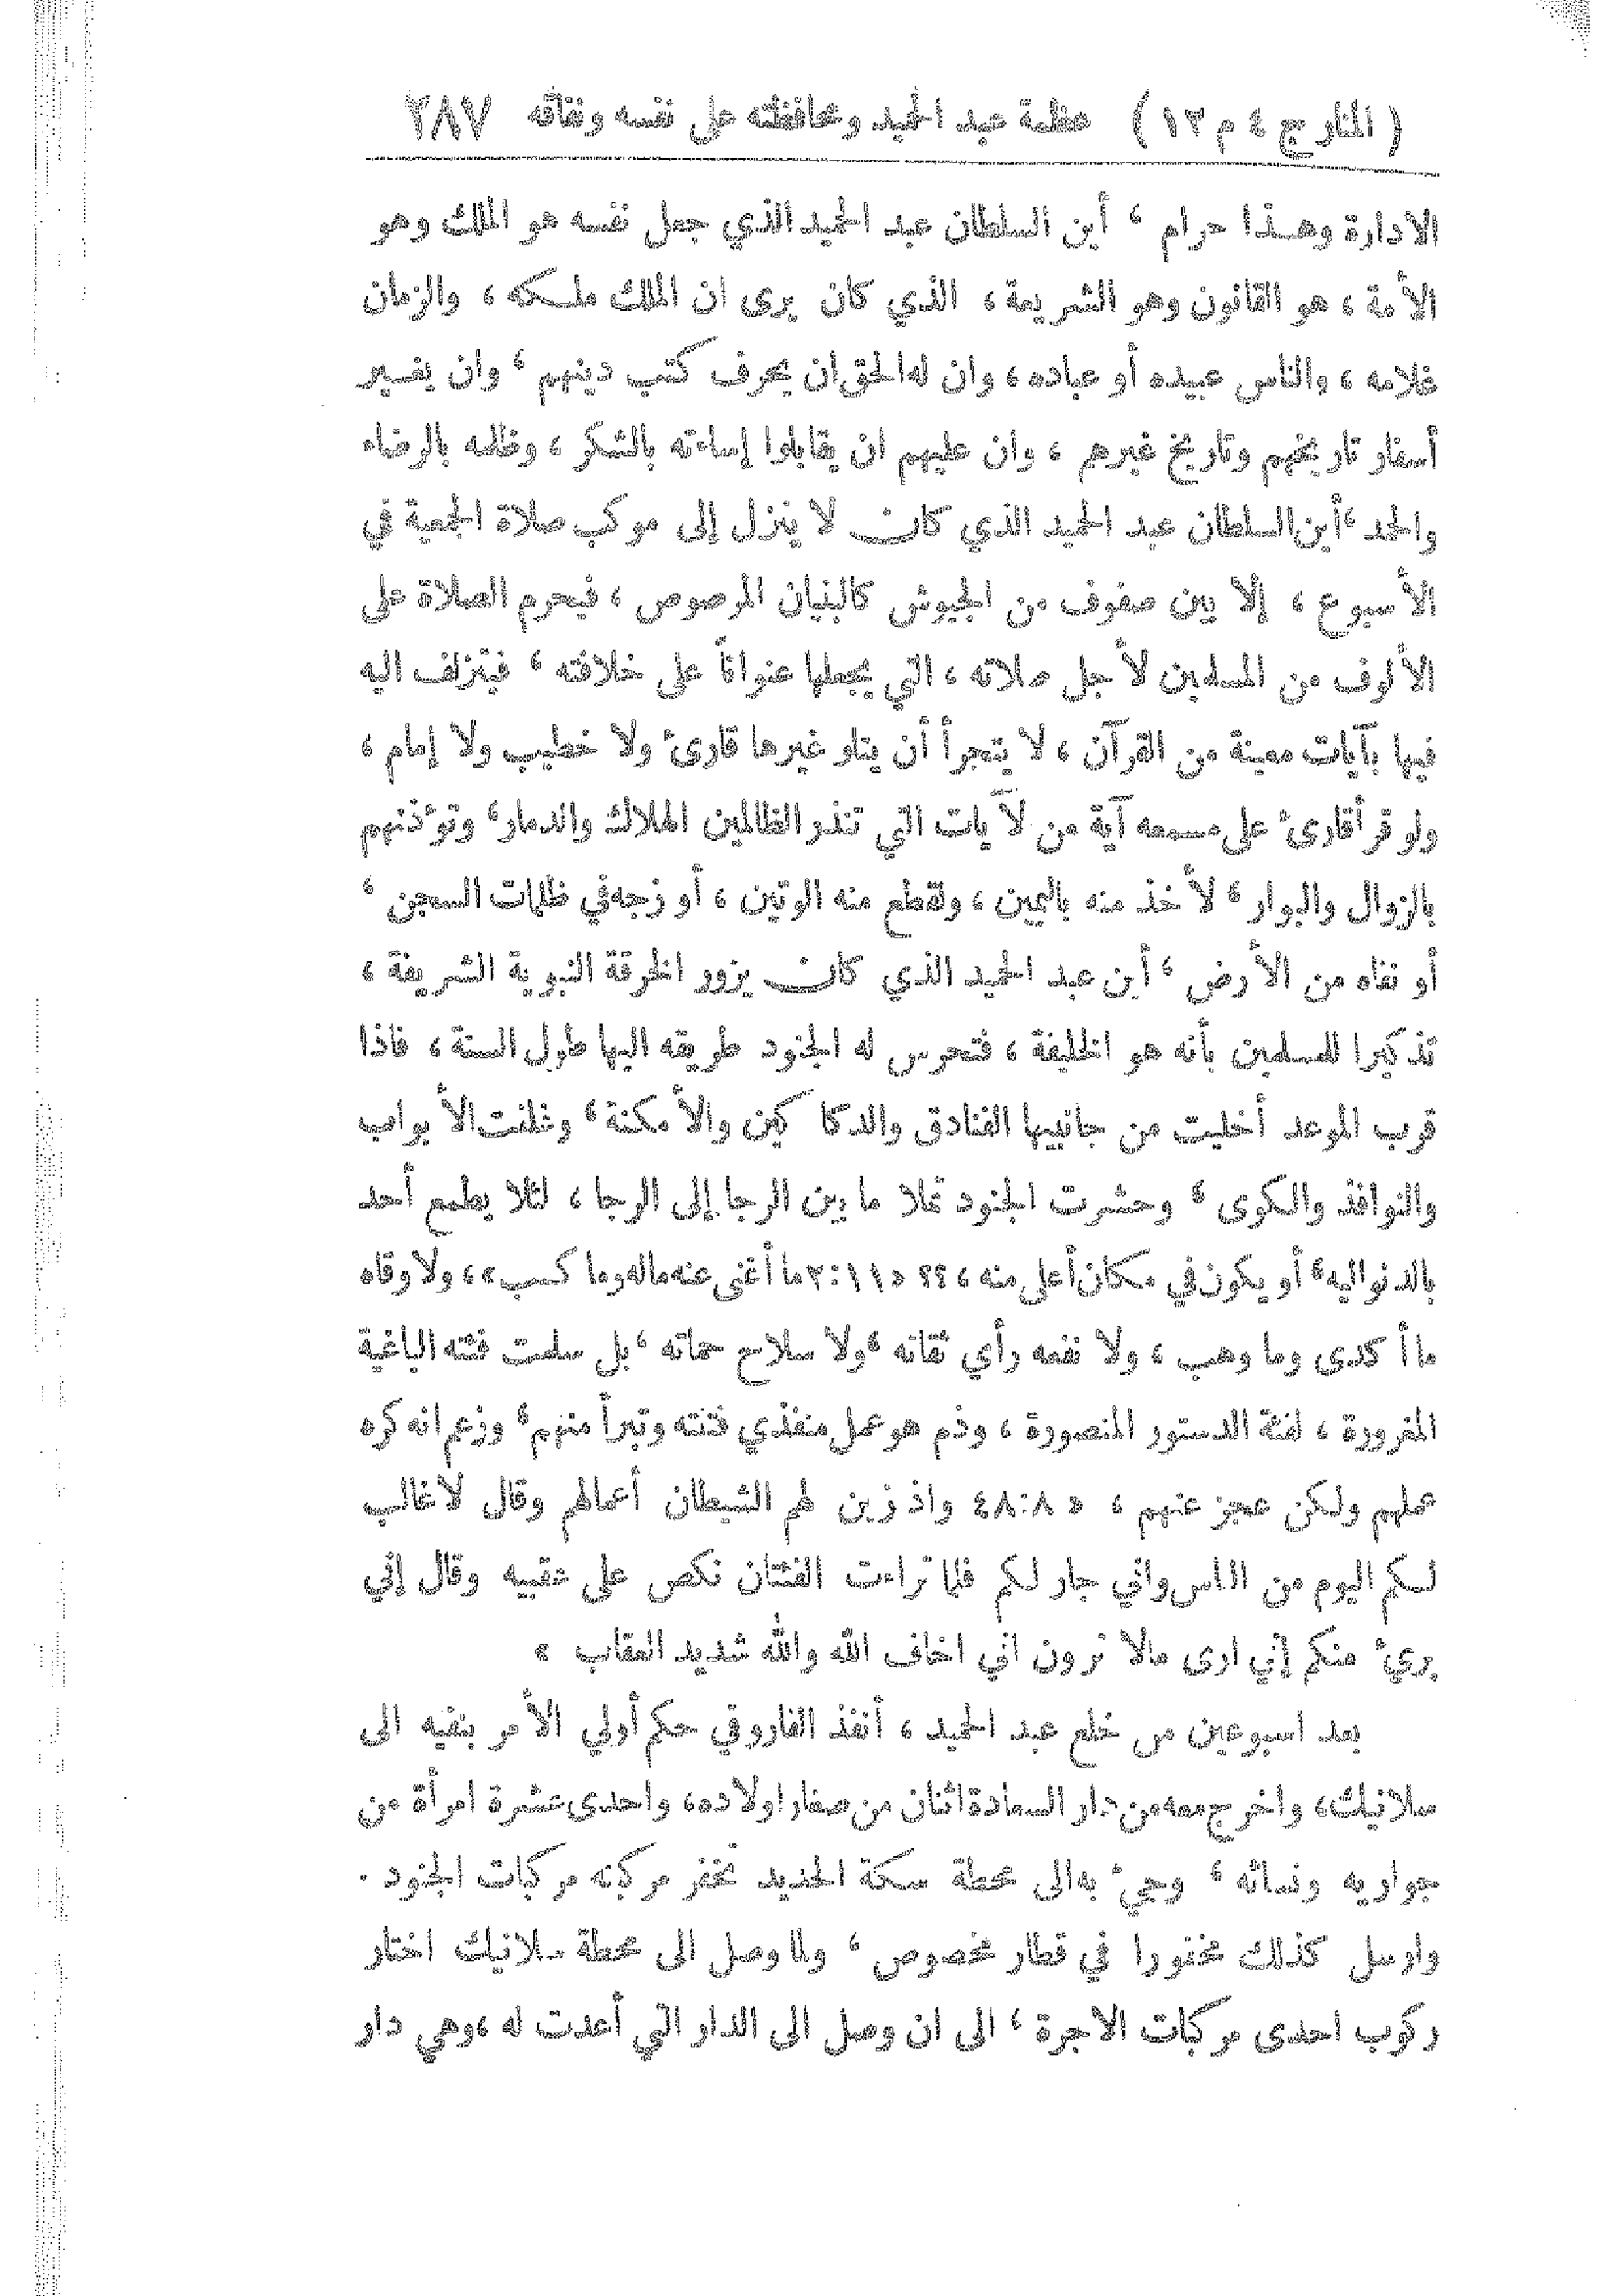 ( المنار ج ٤ م ١٢ ) عظمة عبد الحميد ومحافظته على نفسه ونفاقه ٢٨٧
الادارة وهـذا حرام ، أين السلطان عبد الحميد الذي جعل نفسه هو الملك وهو
الأمة ، هو القانون وهو الشريعة ، الذي كان يرى ان الملك ملكه ، والزمان
غلامه ، والناس عبيده أو عباده ، وان له الحق ان يحرف كتب دينهم ، وان يغير
أسفار تاريخهم وتاريخ غيرهم ، وان عليهم ان يقابلوا إساءته بالشكر ، وظلمه بالرضاء
والحمد ، أين السلطان عبد الحميد الذي كان لا ينزل إلى موكب صلاة الجمعة في
الأسبوع ، إلا بين صفوف من الجيوش كالبنيان المرصوص ، فيحرم الصلاة على
الألوف من المسلمين لأجل صلاته ، التي يجعلها عنوانا على خلافته ، فيتزلف اليه
فيها بآيات معينة من القرآن ، لا يتجرأ أن يتلو غيرها قارئ ولا خطيب ولا إمام ،
ولو قرأ قارئ على مسمعه آية من لآيات التي تنذر الظالمين الهلاك والدمار ، وتؤذنهم
بالزوال والبوار ، لأخذ منه باليمين ، وقطع منه الوتين ، أو زجه في ظلمات السجن ،
أو نفاه من الأرض ، أين عبد الحميد الذي كان يزور الخرقة النبوية الشريفة ،
تذكيرا للمسلمين بأنه هو الخليفة ، فتحرس له الجنود طريقه اليها طول السنة ، فاذا
قرب الموعد أخليت من جانبيها الفنادق والدكاكين والأمكنة ، وغلقت الأبواب
والنوافذ والكوى ، وحشرت الجنود تملا ما بين الرجا إلى الرجا ، لئلا يطمع أحد
بالدنو اليه ، أو يكون في مكان أعلى منه ، ؟؟ « ٢:١١١ ما أغنى عنه ماله وما كسب » ، ولا وقاه
ما أكدى وما وهب ، ولا نفعه رأي ثقاته ، ولا سلاح حماته ، بل سلمت فئته الباغية
المغرورة ، لفئة الدستور المنصورة ، وذم هو عمل منفذي فتنته وتبرأ منهم ، وزعم انه كره
عملهم ولكن عجز عنهم ، « ٤٨:٨ واذ زين لهم الشيطان أعمالهم وقال لا غالب
لكم اليوم من الناس واني جار لكم فلما تراءت الفئتان نكص على عقبيه وقال إني
بريء منكم إني ارى مالا ترون اني اخاف الله والله شديد العقاب »
بعد اسبوعين من خلع عبد الحميد ، أنفذ الفاروقي حكم أولي الأمر بنفيه الى
سلانيك ، واخرج معه من دار السعادة اثنان من صغار اولاده ، واحدى عشرة امرأة من
جواريه ونسائه ، وجيء به الى محطة سكة الحديد تخفر مركبته مركبات الجنود .
وارسل كذلك مخفورا في قطار مخصوص ، ولما وصل الى محطة سلانيك اختار
ركوب احدى مركبات الاجرة ، الى ان وصل الى الدار التي أعدت له ، وهي دار